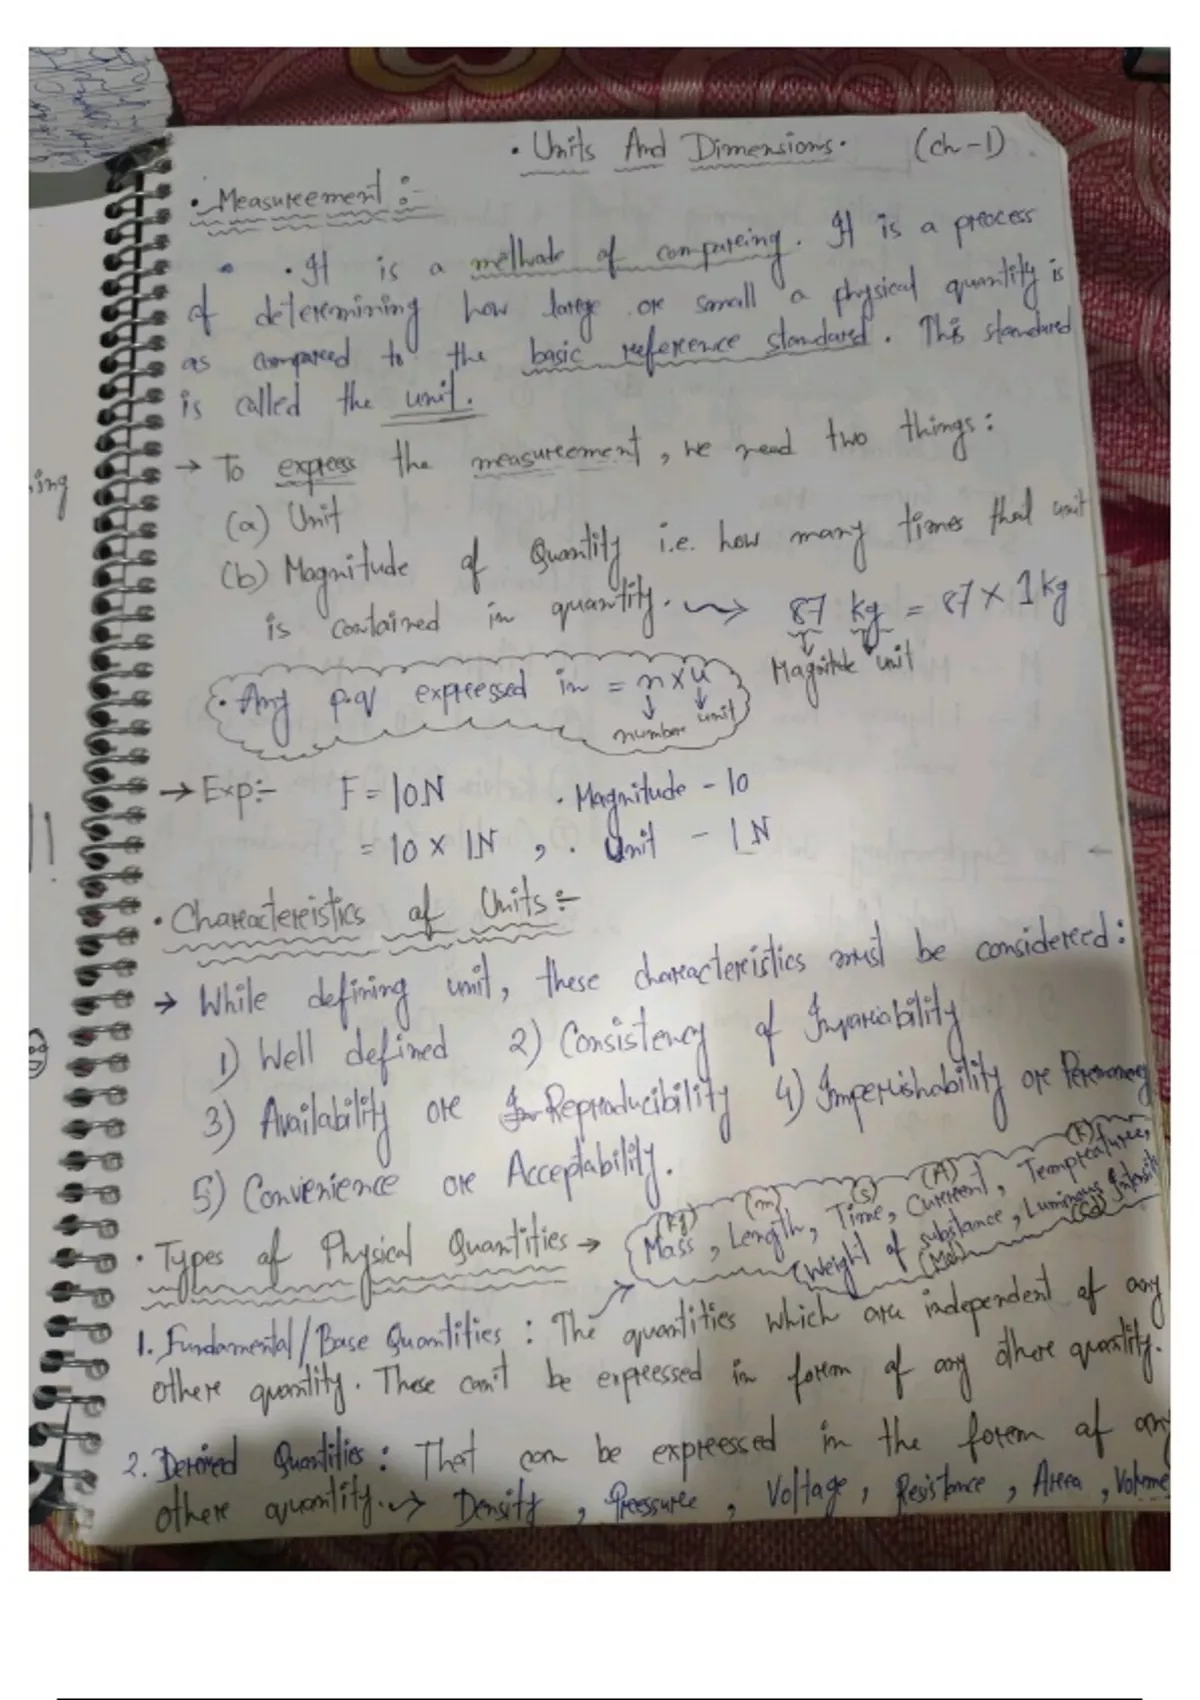 • Units And Dimensions. (ch-1)
• Measurement :-
• It is a method of comparing. It is a process
of determining how large or small a physical quantity is
as compared to the basic reference standard. This standard
is called the unit.
→ To express the measurement, we need two things:
(a) Unit
(b) Magnitude of Quantity i.e. how many times that unit
is contained in quantity. → 87 kg = 87 × 1 kg
Magnitude unit
• Any p.q expressed in = n × u
number unit
→ Exp:- F = 10N • Magnitude - 10
= 10 × 1N , • Unit - 1N
• Characteristics of Units :-
→ While defining unit, these characteristics must be considered:
1) Well defined 2) Consistency of Invariability
3) Availability or Reproducibility 4) Imperishability or Permanency
5) Convenience or Acceptability.
• Types of Physical Quantities →
(kg) (m) (s) (A) (K)
Mass, Length, Time, Current, Tempreature,
(Weight of substance, Luminous Intensity
(Mol) (Cd)
1. Fundamental/Base Quantities : The quantities which are independent of any
other quantity. These can't be expressed in form of any other quantity.
2. Derived Quantities : That can be expressed in the form of any
other quantity. → Density, Pressure, Voltage, Resistance, Area, Volume
ing